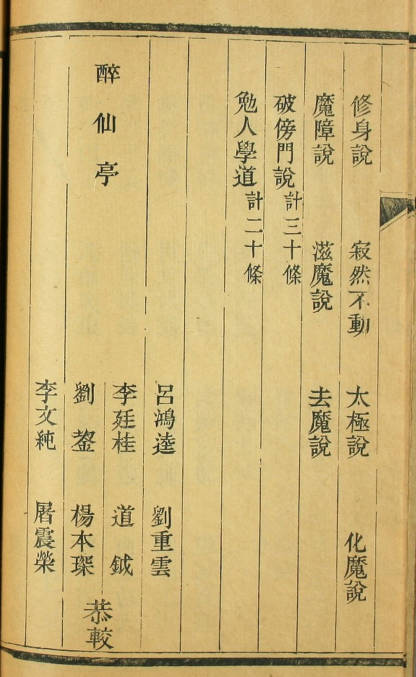 修身說 寂然不動 太極說 化魔說
魔障說 滋魔說 去魔說
破傍門說計三十條
勉人學道計二十條
醉仙亭
呂鴻逵 劉重雲
李廷桂 道鉞
劉 楊本琛
李文純 屠震榮
恭較